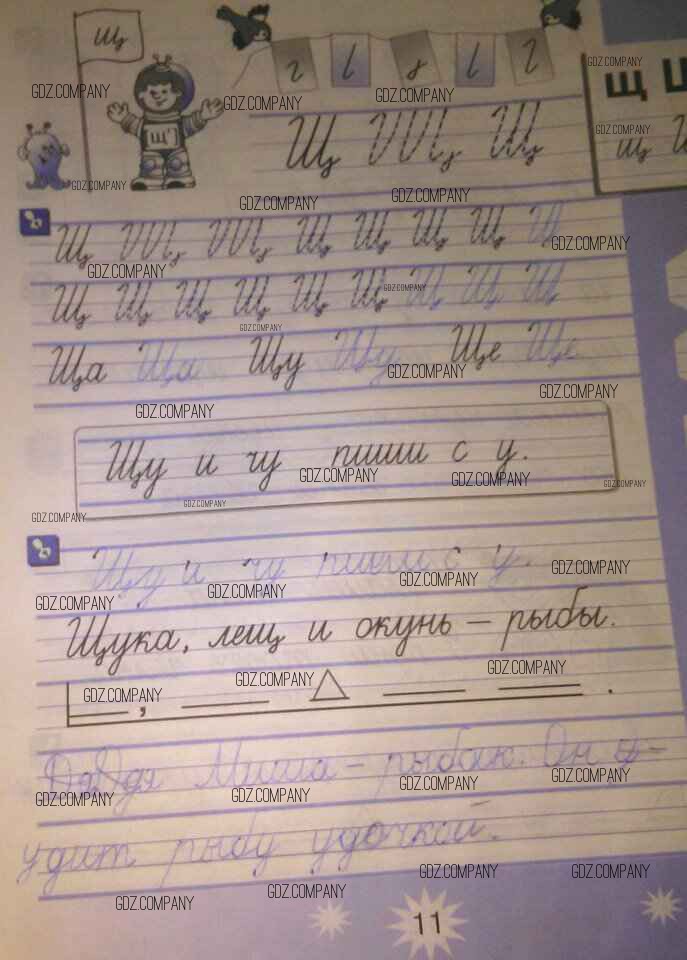 Щ
Щ
Щ Щ Щ
Щ Щ
щ
Щ Щ Щ Щ Щ Щ Щ Щ
Щ Щ Щ Щ Щ Щ Щ Щ Щ
Ща Ща Щу Щу Ще Ще
Щу и чу пиши с у.
Щу и чу пиши с у.
Щука, лещ и окунь – рыбы.
Дядя Миша – рыбак. Он
удит рыбу удочкой.
11
GDZ.COMPANY